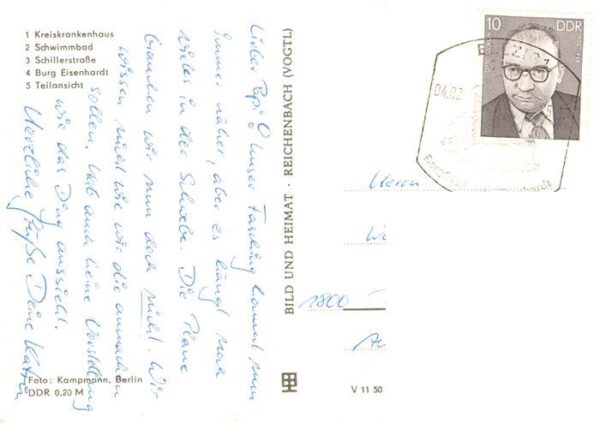 1 Kreiskrankenhaus
2 Schwimmbad
3 Schillerstraße
4 Burg Eisenhardt
5 Teilansicht
Lieber Papi! Unser Fasching kommt nun
immer näher, aber es hängt noch
vieles in der Schwebe. Die Plane
brauchen wir nun doch nicht. Wir
wissen nicht wie wir die anmachen
sollen. Hab auch keine Vorstellung
wie das Ding aussieht.
Herzliche Grüße Deine Katrin
Foto: Kampmann, Berlin
DDR 0,20 M
BILD UND HEIMAT · REICHENBACH (VOGTL)
V 11 50
10 DDR
04.02
Herrn
1800